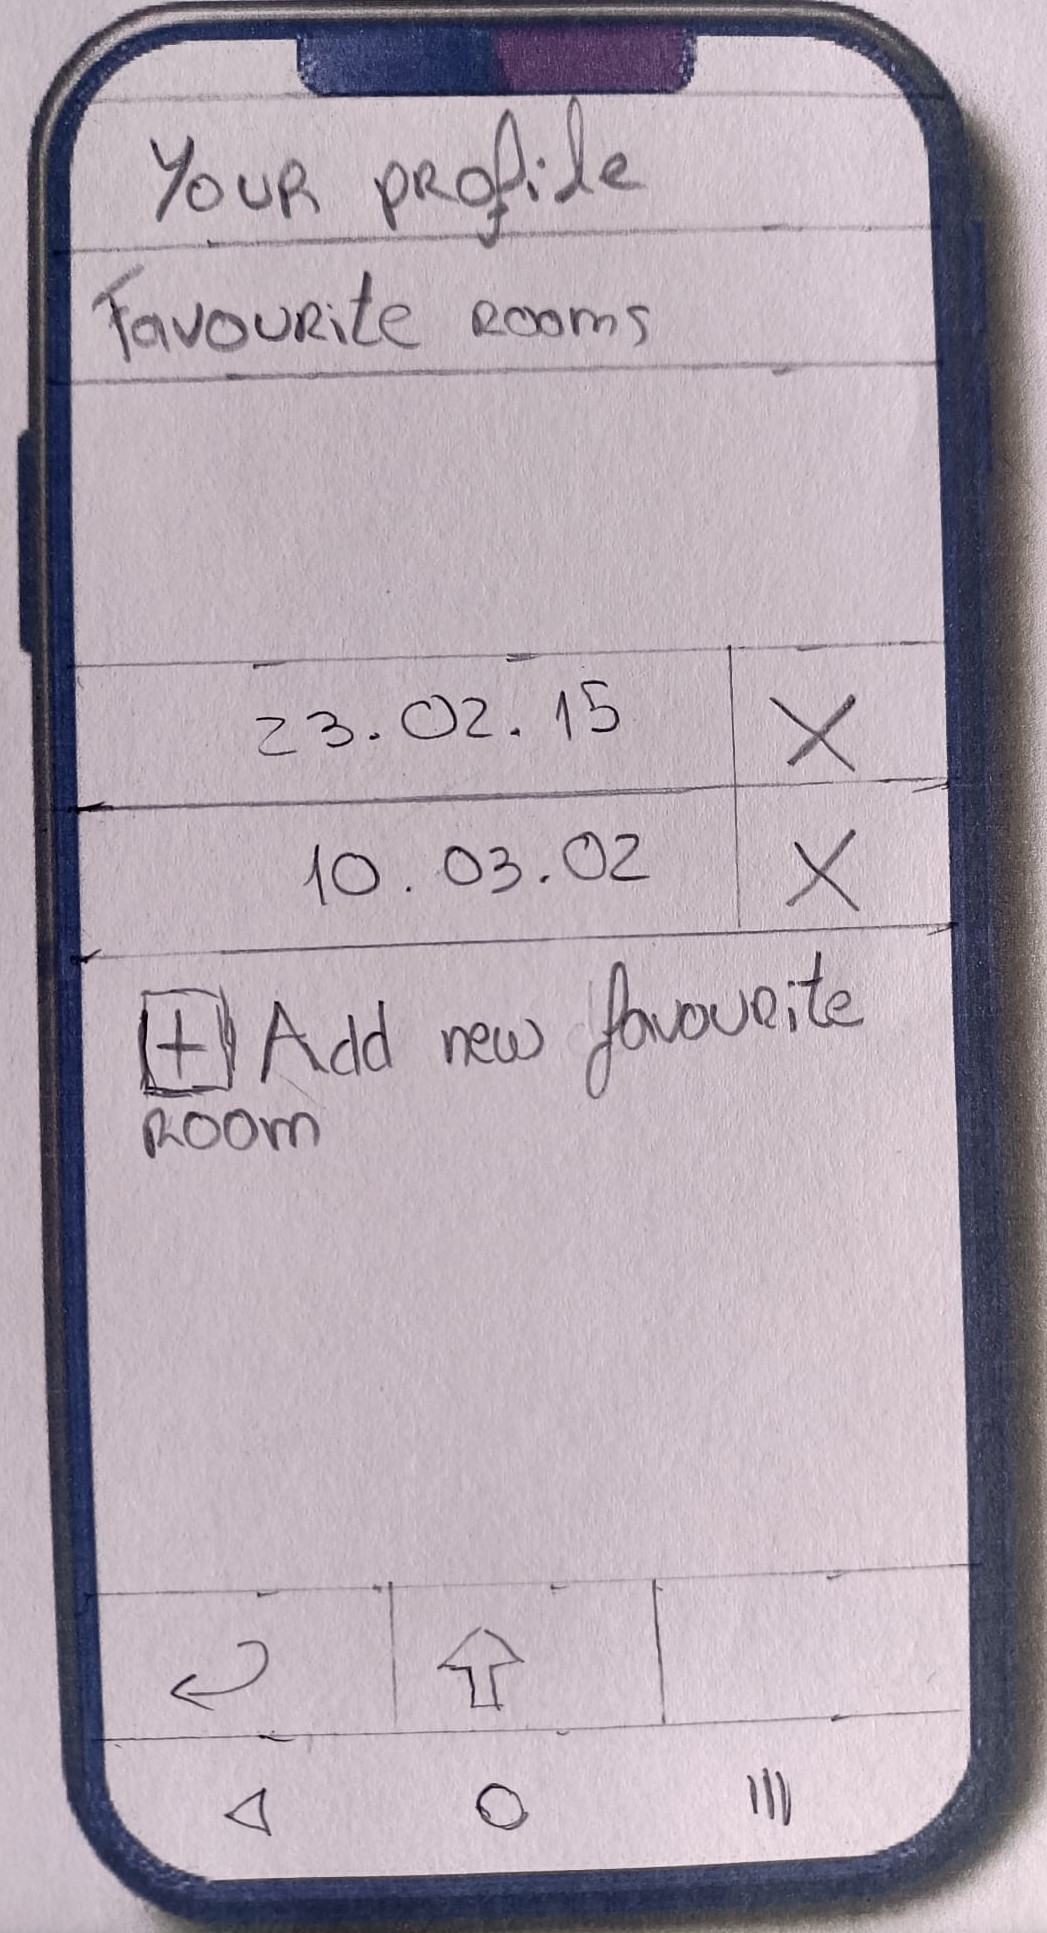 Your profile
Favourite rooms
23.02.15 X
10.03.02 X
+ Add new favourite
room